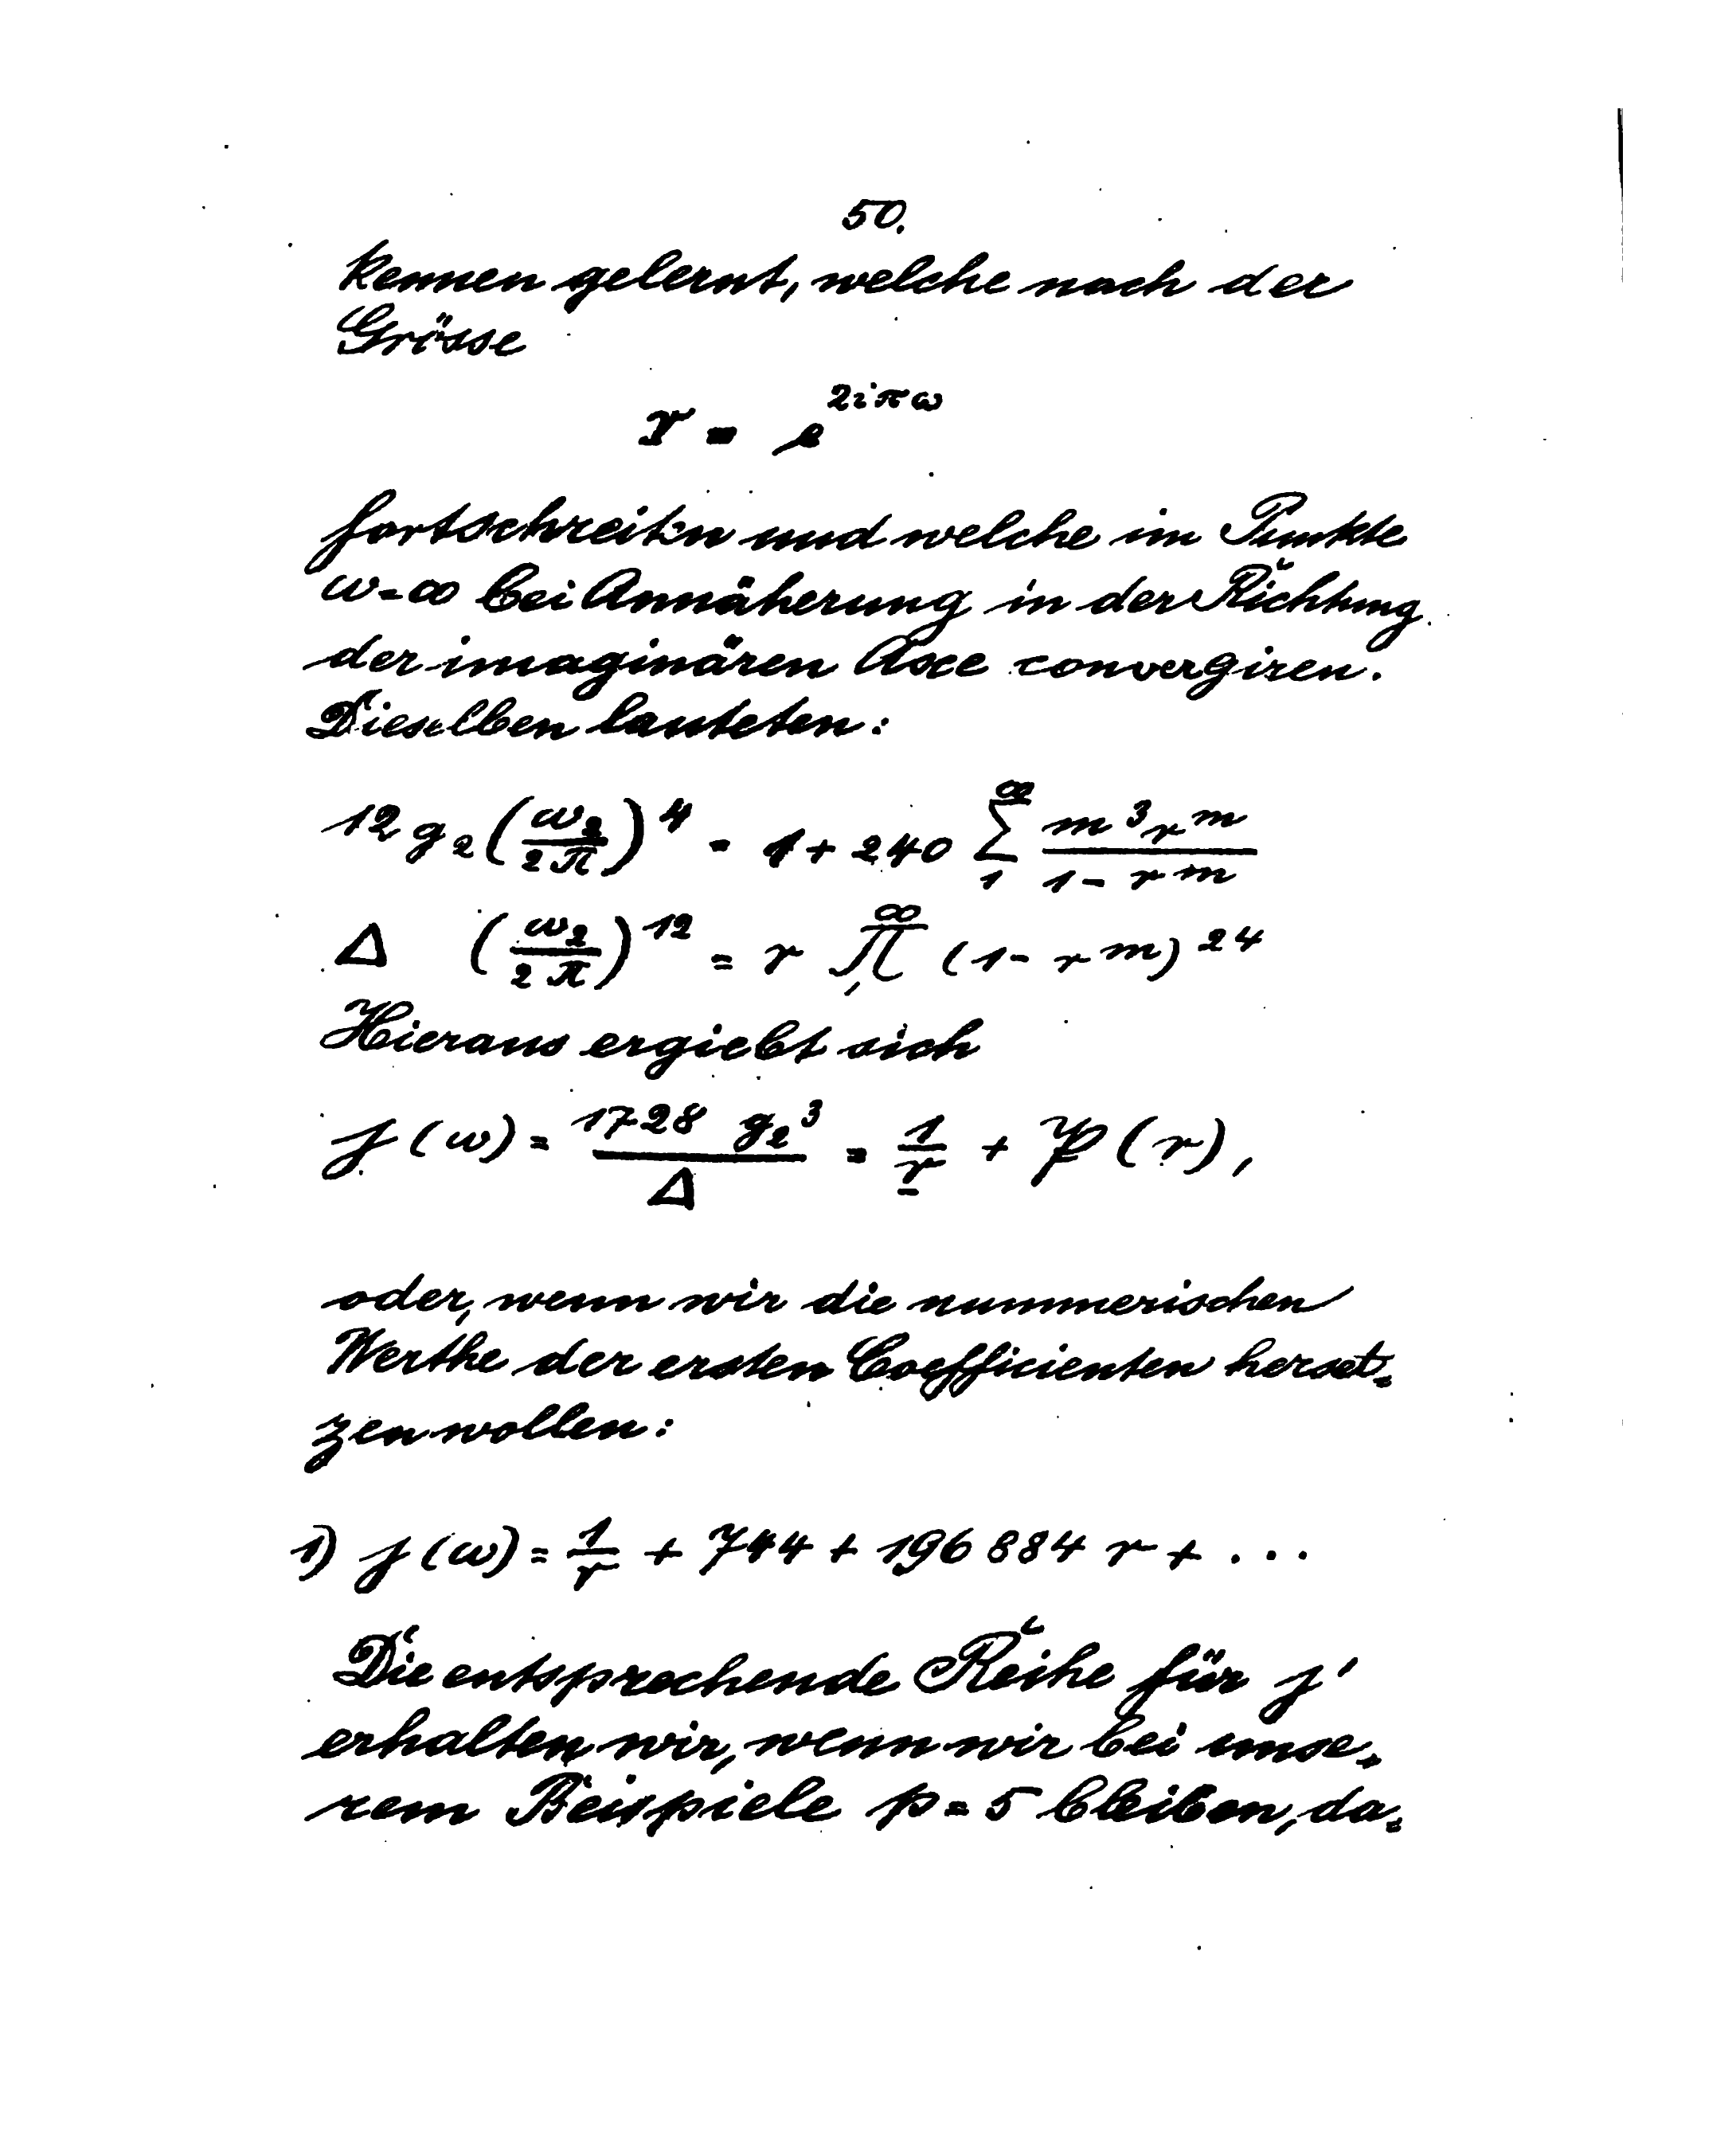 50.
kennen gelernt, welche nach der
Grösse
r = e^{2iπω}
fortschreiten und welche im Punkte
ω=∞ bei Annäherung in der Richtung
der imaginären Axe convergiren.
Dieselben lauteten:
12 g_2 (ω_2/2π)^4 = 1 + 240 ∑_1^∞ m^3 r^m / 1 - r^m
Δ (ω_2/2π)^{12} = r ∏_1^∞ (1 - r^m)^{24}
Hieraus ergiebt sich
j(ω) = 1728 g_2^3 / Δ = 1/r + 𝔓(r),
oder, wenn wir die nummerischen
Werthe der ersten Coefficienten herset=
zen wollen:
1) j(ω) = 1/r + 744 + 196884 r + ...
Die entsprechende Reihe für j'
erhalten wir, wenn wir bei unse=
rem Beispiele p=5 bleiben, da=